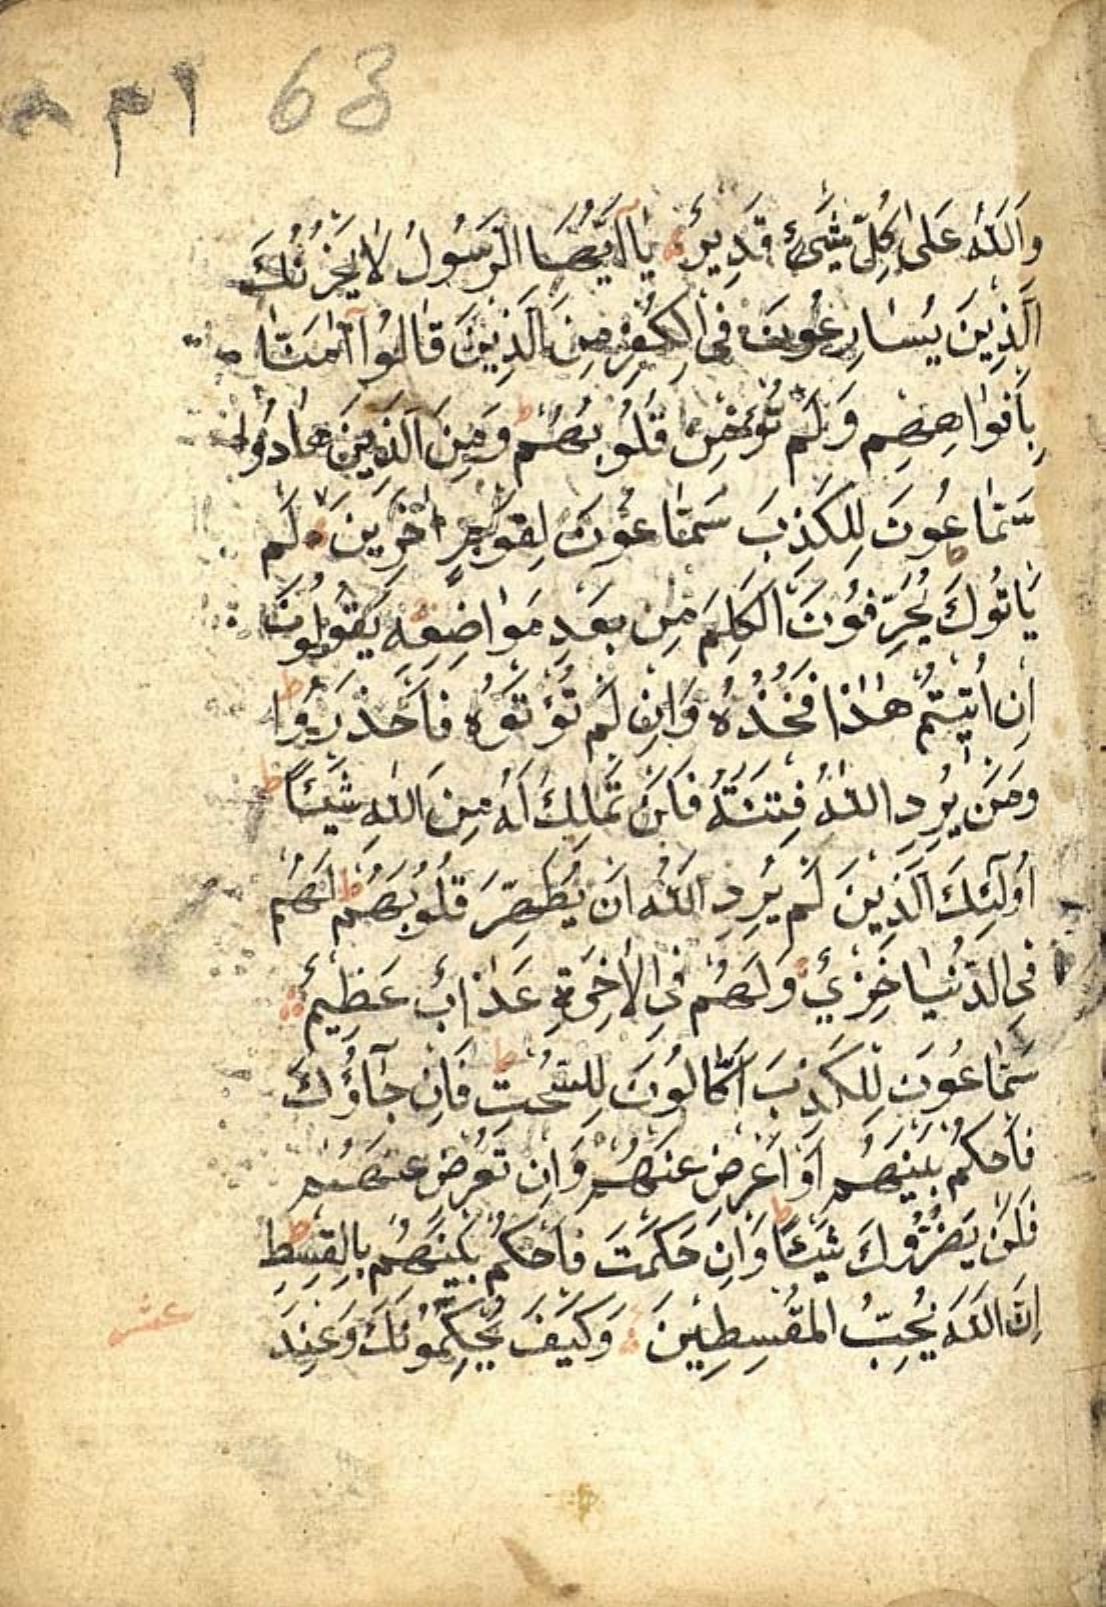 63 ١م٨
وَاللّٰهُ عَلٰى كُلِّ شَيْءٍ قَدِيرٌ يَاأَيُّهَا الرَّسُولُ لَا يَحْزُنْكَ
الَّذِينَ يُسَارِعُونَ فِي الْكُفْرِ مِنَ الَّذِينَ قَالُوا آمَنَّا
بِأَفْوَاهِهِمْ وَلَمْ تُؤْمِنْ قُلُوبُهُمْ ط وَمِنَ الَّذِينَ هَادُوا
سَمَّاعُونَ لِلْكَذِبِ سَمَّاعُونَ لِقَوْمٍ اٰخَرِينَ لَمْ
يَأْتُوكَ يُحَرِّفُونَ الْكَلِمَ مِنْ بَعْدِ مَوَاضِعِهِ يَقُولُونَ
إِنْ أُتِيتُمْ هٰذَا فَخُذُوهُ وَإِنْ لَمْ تُؤْتَوْهُ فَاحْذَرُوا ط
وَمَنْ يُرِدِ اللّٰهُ فِتْنَتَهُ فَلَنْ تَمْلِكَ لَهُ مِنَ اللّٰهِ شَيْئًا ط
أُولٰئِكَ الَّذِينَ لَمْ يُرِدِ اللّٰهُ أَنْ يُطَهِّرَ قُلُوبَهُمْ ط لَهُمْ
فِي الدُّنْيَا خِزْيٌ وَلَهُمْ فِي الْاٰخِرَةِ عَذَابٌ عَظِيمٌ
سَمَّاعُونَ لِلْكَذِبِ أَكَّالُونَ لِلسُّحْتِ ط فَإِنْ جَآؤُكَ
فَاحْكُمْ بَيْنَهُمْ أَوْ أَعْرِضْ عَنْهُمْ وَإِنْ تُعْرِضْ عَنْهُمْ
فَلَنْ يَضُرُّوكَ شَيْئًا ط وَإِنْ حَكَمْتَ فَاحْكُمْ بَيْنَهُمْ بِالْقِسْطِ ط
إِنَّ اللّٰهَ يُحِبُّ الْمُقْسِطِينَ وَكَيْفَ يُحَكِّمُونَكَ وَعِنْدَ
عشر